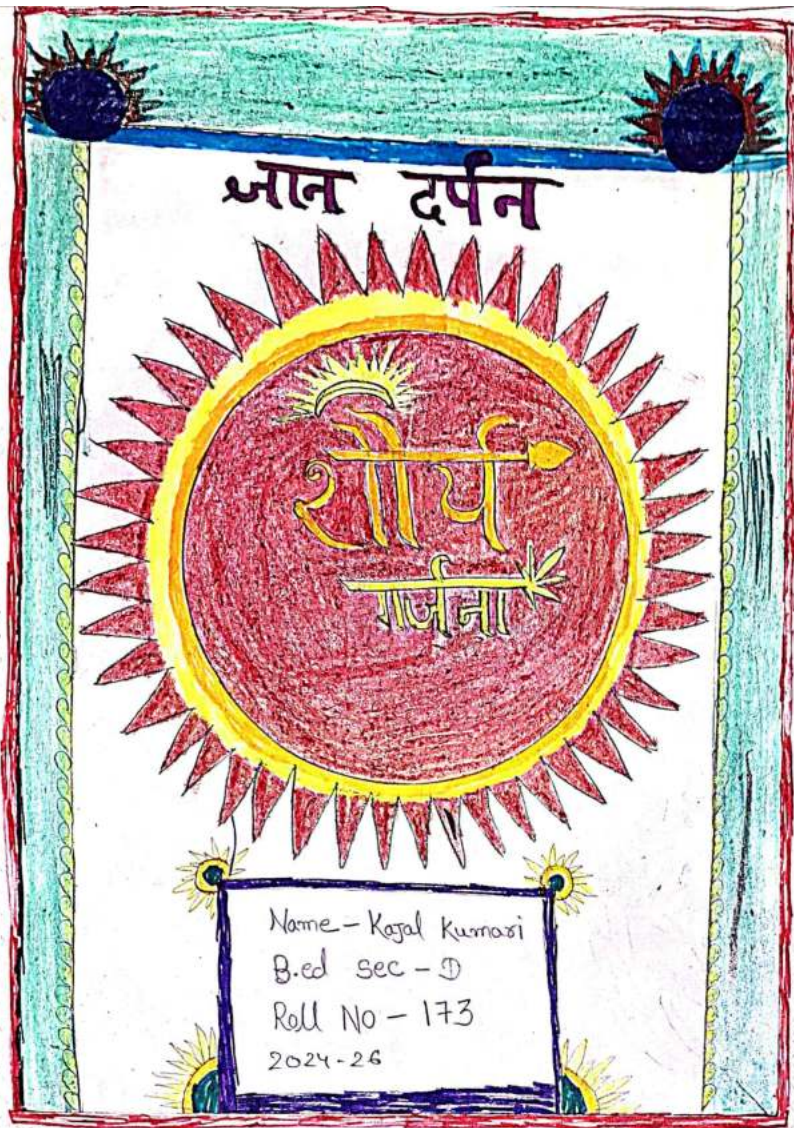 ज्ञान दर्पन
शौर्य
गर्जना
Name - Kajal Kumari
B.ed Sec - D
Roll No - 173
2024-26